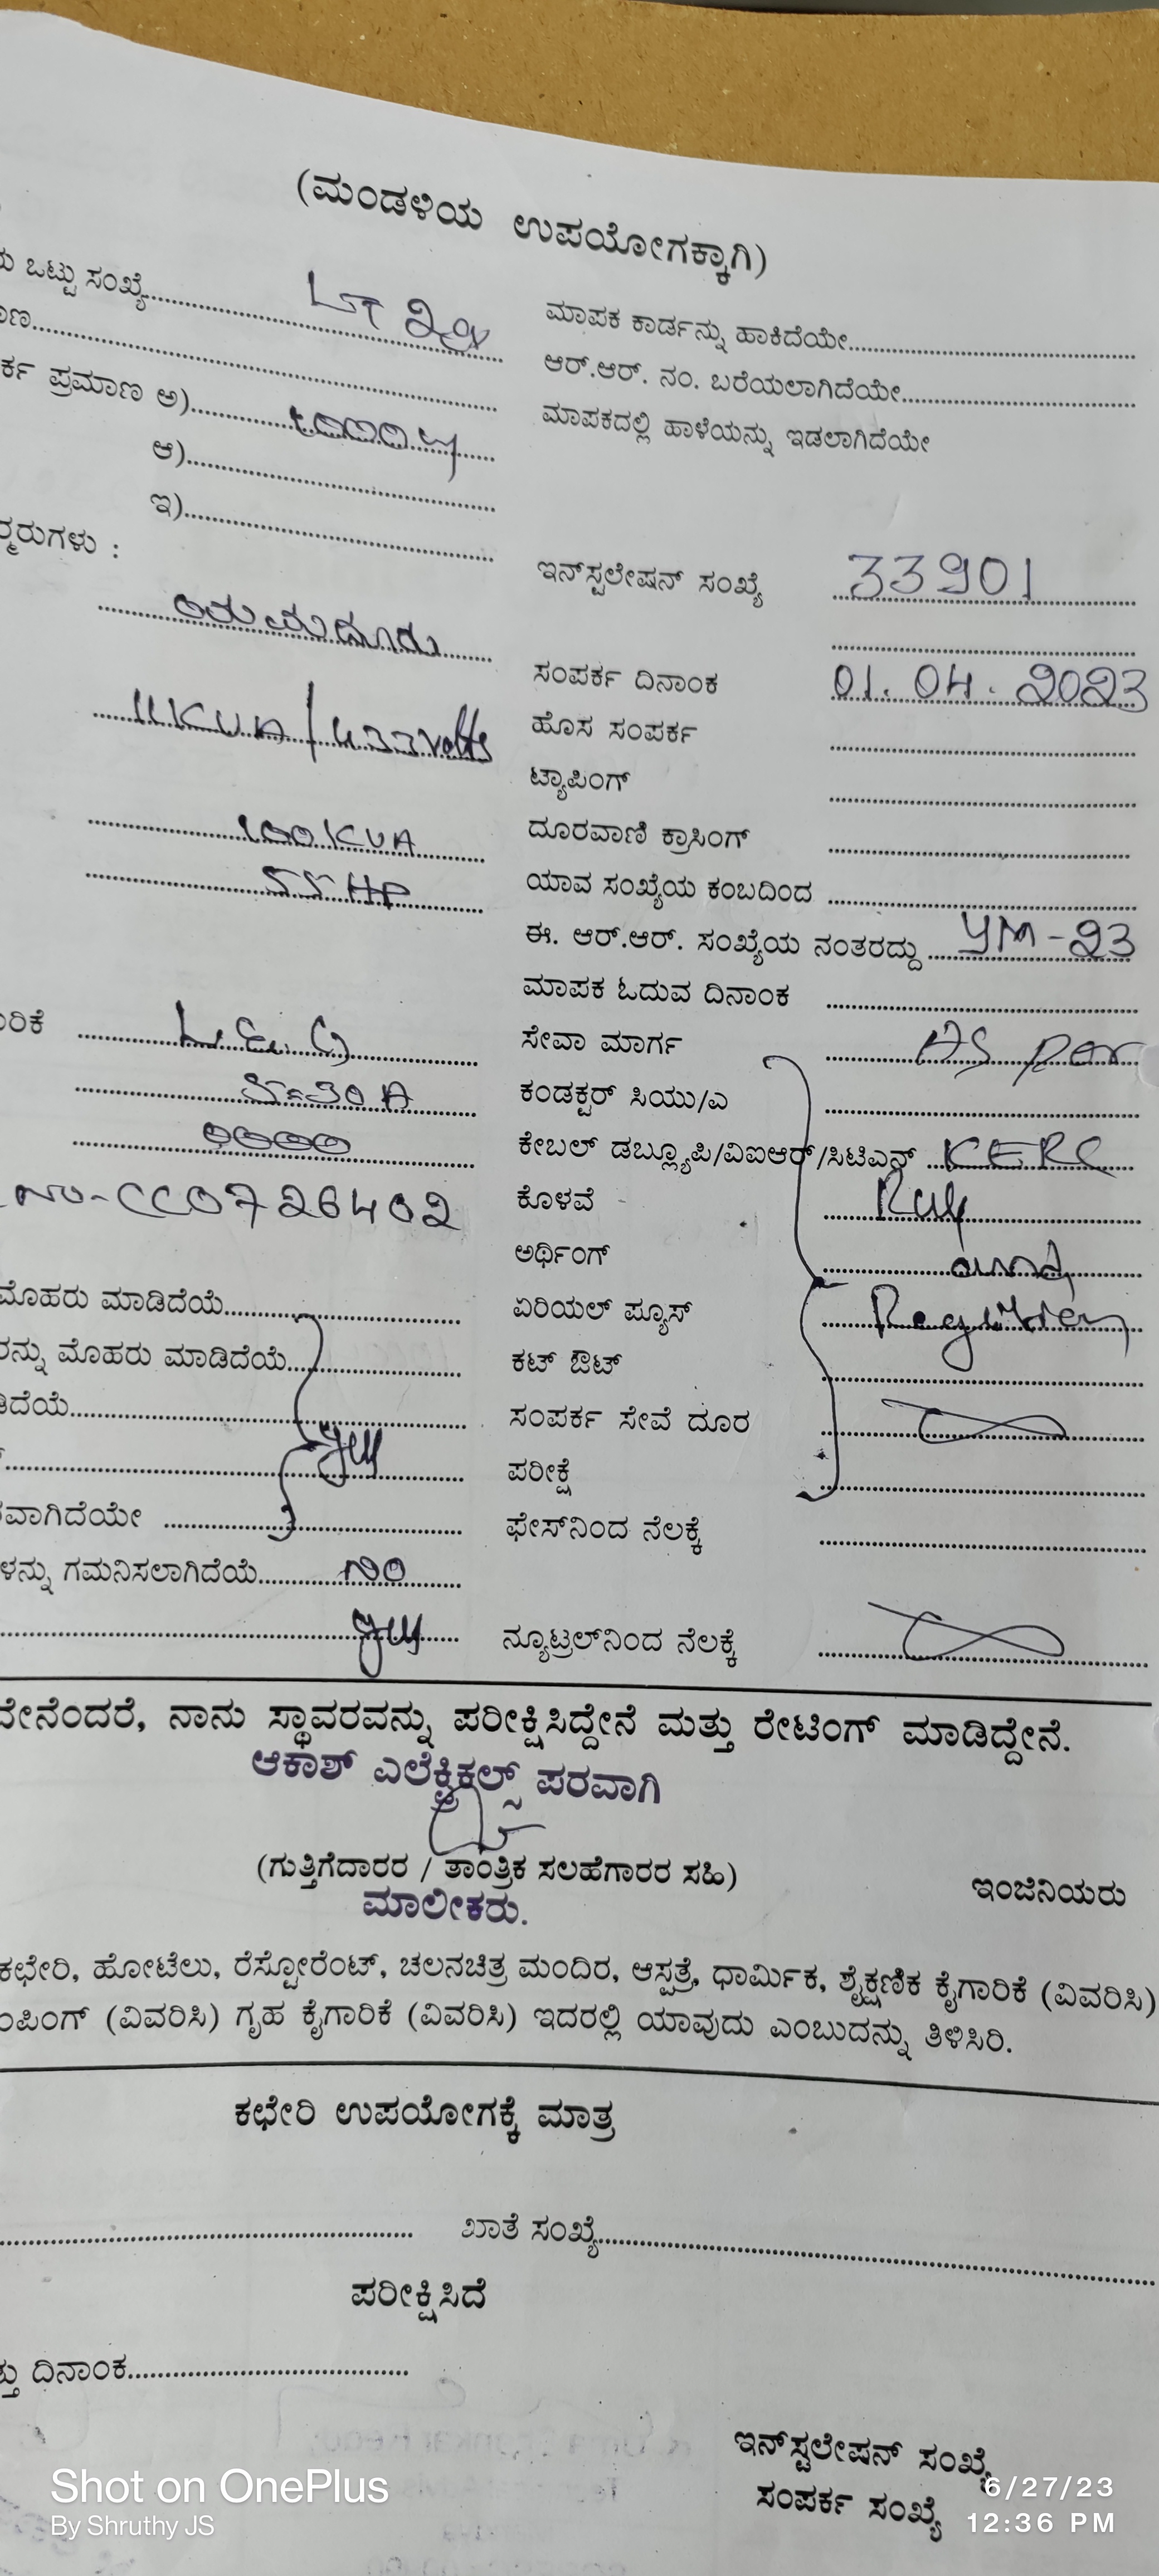 (ಮಂಡಳಿಯ ಉಪಯೋಗಕ್ಕಾಗಿ)
ಒಟ್ಟು ಸಂಖ್ಯೆ
ಮಾಪಕ ಕಾರ್ಡನ್ನು ಹಾಕಿದೆಯೇ
ಆರ್.ಆರ್. ನಂ. ಬರೆಯಲಾಗಿದೆಯೇ
ಪ್ರಮಾಣ ಅ)
ಮಾಪಕದಲ್ಲಿ ಹಾಳೆಯನ್ನು ಇಡಲಾಗಿದೆಯೇ
ಆ)
ಇ)
ಇನ್‌ಸ್ಟಲೇಷನ್ ಸಂಖ್ಯೆ 33901
ಸಂಪರ್ಕ ದಿನಾಂಕ 01.04.2023
11KVA/433volts ಹೊಸ ಸಂಪರ್ಕ
ಟ್ಯಾಪಿಂಗ್
100KVA ದೂರವಾಣಿ ಕ್ರಾಸಿಂಗ್
55HP ಯಾವ ಸಂಖ್ಯೆಯ ಕಂಬದಿಂದ
ಈ. ಆರ್.ಆರ್. ಸಂಖ್ಯೆಯ ನಂತರದ್ದು YM-23
ಮಾಪಕ ಓದುವ ದಿನಾಂಕ
ಸೇವಾ ಮಾರ್ಗ As per
5-30A ಕಂಡಕ್ಟರ್ ಸಿಯು/ಎ
ಕೇಬಲ್ ಡಬ್ಲ್ಯೂಪಿ/ವಿಐಆರ್/ಸಿಟಿಎಸ್ KERC
No-CC0726402 ಕೊಳವೆ
ಅರ್ಥಿಂಗ್ and
ಮೊಹರು ಮಾಡಿದೆಯೆ ಏರಿಯಲ್ ಪ್ಯೂಸ್
ಮೊಹರು ಮಾಡಿದೆಯೆ ಕಟ್ ಔಟ್
ಸಂಪರ್ಕ ಸೇವೆ ದೂರ
ಪರೀಕ್ಷೆ
ಫೇಸ್‌ನಿಂದ ನೆಲಕ್ಕೆ
ಗಮನಿಸಲಾಗಿದೆಯೆ No
ನ್ಯೂಟ್ರಲ್‌ನಿಂದ ನೆಲಕ್ಕೆ
ನಾನು ಸ್ಥಾವರವನ್ನು ಪರೀಕ್ಷಿಸಿದ್ದೇನೆ ಮತ್ತು ರೇಟಿಂಗ್ ಮಾಡಿದ್ದೇನೆ.
ಆಕಾಶ್ ಎಲೆಕ್ಟ್ರಿಕಲ್ಸ್ ಪರವಾಗಿ
(ಗುತ್ತಿಗೆದಾರರ / ತಾಂತ್ರಿಕ ಸಲಹೆಗಾರರ ಸಹಿ) ಇಂಜಿನಿಯರು
ಮಾಲೀಕರು.
ಕಛೇರಿ, ಹೋಟೆಲು, ರೆಸ್ಟೋರೆಂಟ್, ಚಲನಚಿತ್ರ ಮಂದಿರ, ಆಸ್ಪತ್ರೆ, ಧಾರ್ಮಿಕ, ಶೈಕ್ಷಣಿಕ ಕೈಗಾರಿಕೆ (ವಿವರಿಸಿ)
(ವಿವರಿಸಿ) ಗೃಹ ಕೈಗಾರಿಕೆ (ವಿವರಿಸಿ) ಇದರಲ್ಲಿ ಯಾವುದು ಎಂಬುದನ್ನು ತಿಳಿಸಿರಿ.
ಕಛೇರಿ ಉಪಯೋಗಕ್ಕೆ ಮಾತ್ರ
ಖಾತೆ ಸಂಖ್ಯೆ
ಪರೀಕ್ಷಿಸಿದೆ
ದಿನಾಂಕ
ಇನ್‌ಸ್ಟಲೇಷನ್ ಸಂಖ್ಯೆ
ಸಂಪರ್ಕ ಸಂಖ್ಯೆ
Shot on OnePlus
By Shruthy JS
6/27/23
12:36 PM